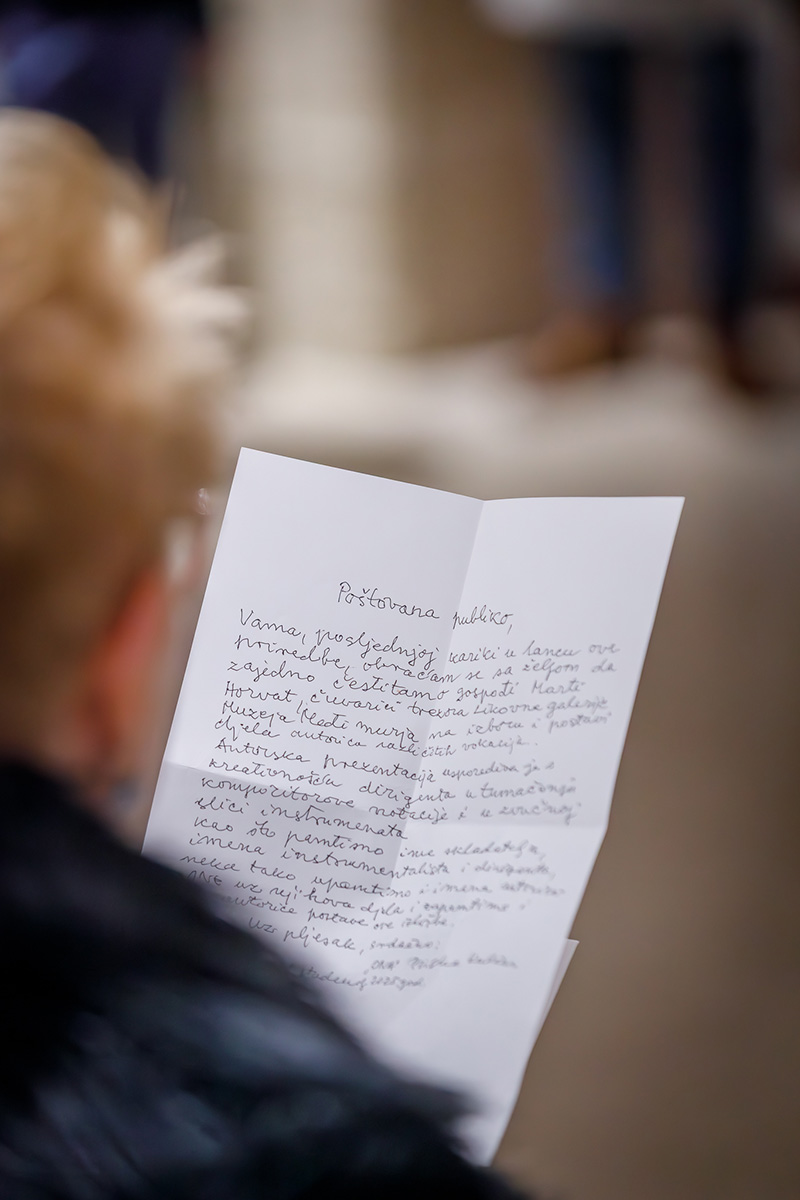 Poštovana publiko,
Vama, posljednjoj kariki u lancu ove
priredbe, obraćam se sa željom da
zajedno čestitamo gospođi Marti
Horvat, čuvarici trezora Likovne galerije
Muzeja Međimurja na izboru i postavi
djela autorica različitih vokacija..
Autorska prezentacija usporediva je s
kreativnošću dirigenta u tumačenju
kompozitorove notacije i u zvučnoj
slici instrumenata
kao što pamtimo ime skladatelja,
imena instrumentalista i dirigenta,
neka tako upamtimo i imena autorica
ONE uz njihova djela i zapamtimo i
autorice postave ove izložbe.
Uz pljesak, srdačno:
"ONA"
studenog 2025 god.